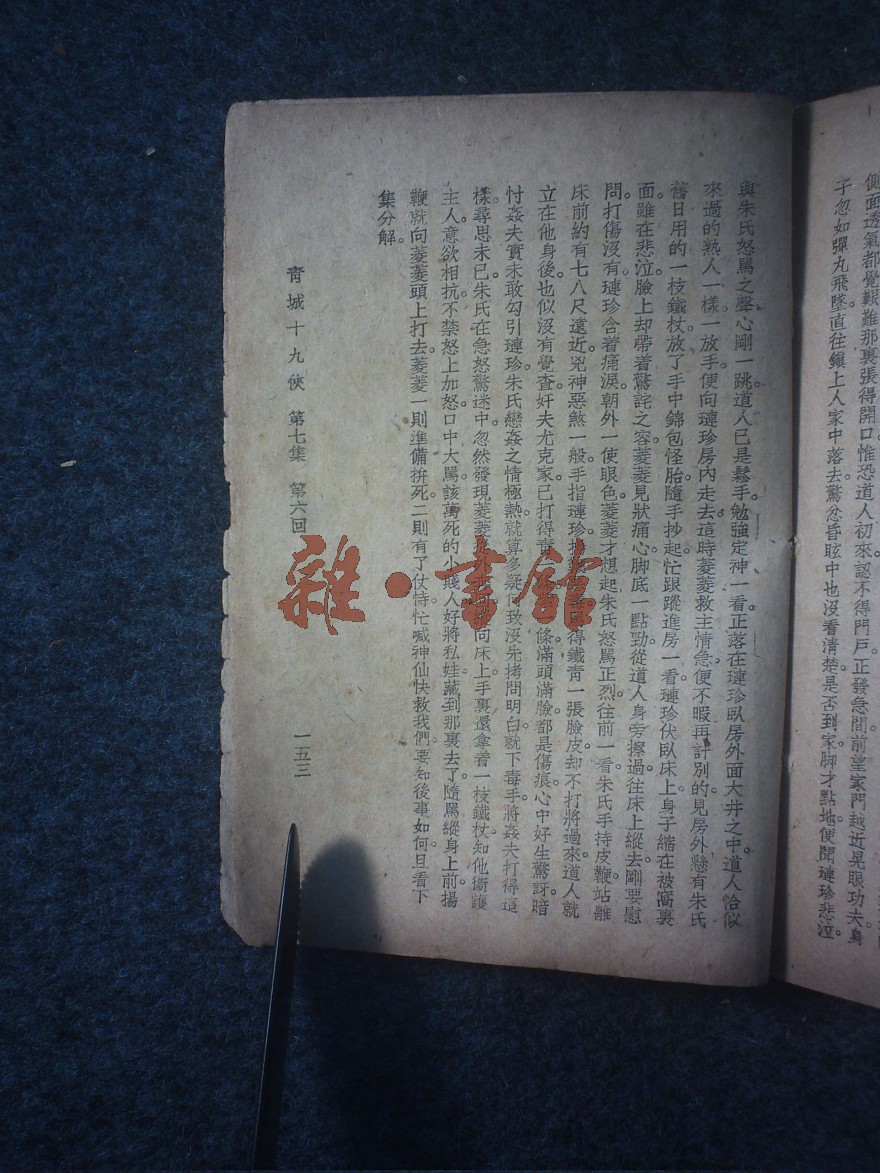 側面透氣都覺艱難那裏張得開口惟恐道人初來認不得門戶。正發急間前望家門越近晃眼功夫身
子忽如彈丸飛墜直往鎮上人家中落去驚忿昏眩中也沒看清楚是否到家脚才點地便聞璉珍悲泣
與朱氏怒罵之聲心剛一跳道人已是鬆手勉強定神一看正落在璉珍臥房外面大井之中。道人恰似
來過的熟人一樣一放手便向璉珍房內走去這時菱菱救主情急便不暇再計別的見房外懸有朱氏
舊日用的一枝鐵杖放了手中錦包怪胎隨手抄起忙跟蹤進房一看璉珍伏臥床上身子縮在被窩裏
面雖在悲泣臉上却帶着驚詫之容。菱菱見狀痛心脚底一點勁從道人身旁擦過往床上縱去剛要慰
問打傷沒有璉珍含着痛淚朝外一使眼色。菱菱才想起朱氏怒罵正烈往前一看朱氏手持皮鞭站離
床前約有七八尺遠近。兇神惡煞一般手指璉珍得鐵青一張臉皮却不打將過來。道人就
立在他身後也似沒有覺查奸夫尤克家已打得青條滿頭滿臉都是傷痕。心中好生驚訝暗
忖姦夫實未敢勾引璉珍朱氏戀姦之情極熱就算多疑何致沒先拷問明白就下毒手。將姦夫打得這
樣。尋思未已。朱氏在急怒驚迷中忽然發現菱菱從外向床上手裏還拿着一枝鐵杖知他衞護
主人意欲相抗不禁怒上加怒口中大罵該萬死的小賤人好將私娃藏到那裏去了隨罵縱身上前揚
鞭就向菱菱頭上打去。菱菱一則準備拚死二則有了仗恃忙喊神仙快救我們要知後事如何且看下
集分解。
青城十九俠 第七集 第六回 一五三
雜·書館